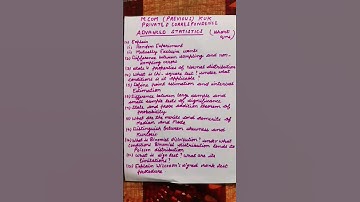 M.COM (PREVIOUS) KUK
PRIVATE & CORRESPONDENCE
ADVANCED STATISTICS (Short
Explain
(i) Random Experiment
(ii) Mutually Exclusive events
Difference between sampling and non-
sampling errors
State 4 properties of normal distribution
What is Chi-square test? Under what
conditions is it applicable?
Define point estimation and interval
Estimation
Difference between large sample and
small sample tests of significance
State and prove addition theorem of
probability
What are the merits and demerits of
Median and Mode
Distinguish between skewness and
Kurtosis
What is Binomial distribution? under what
conditions Binomial distribution tends to
Poisson distribution
What is sign test? what are its
limitations?
Explain Wilcoxon's signed rank test
procedure